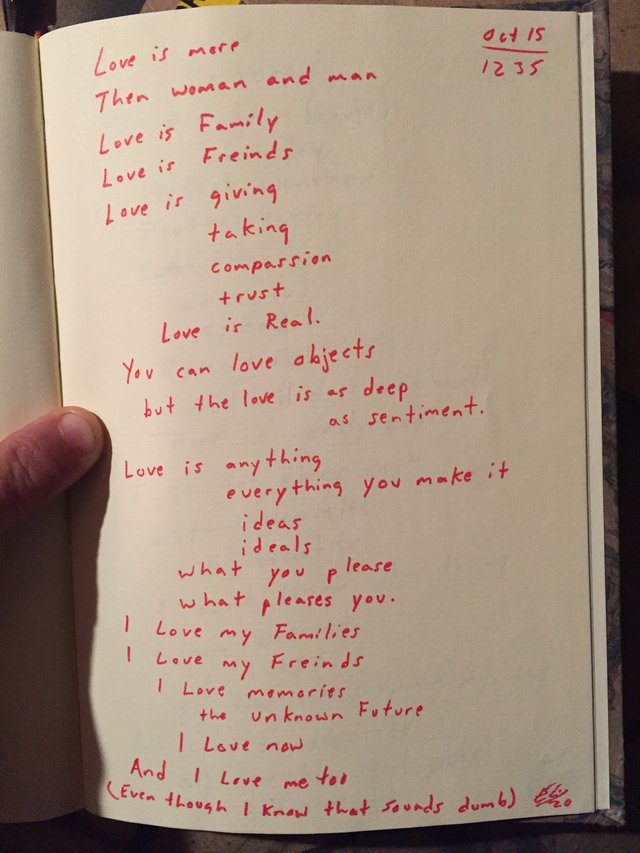 Oct 15
1235
Love is more
Then woman and man
Love is Family
Love is Freinds
Love is giving
taking
compassion
trust
Love is Real.
You can love objects
but the love is as deep
as sentiment.
Love is anything
everything you make it
ideas
ideals
what you please
what pleases you.
I Love my Families
I Love my Freinds
I Love memories
the unknown Future
I Love now
And I Love me too
(Even though I know that sounds dumb)
20